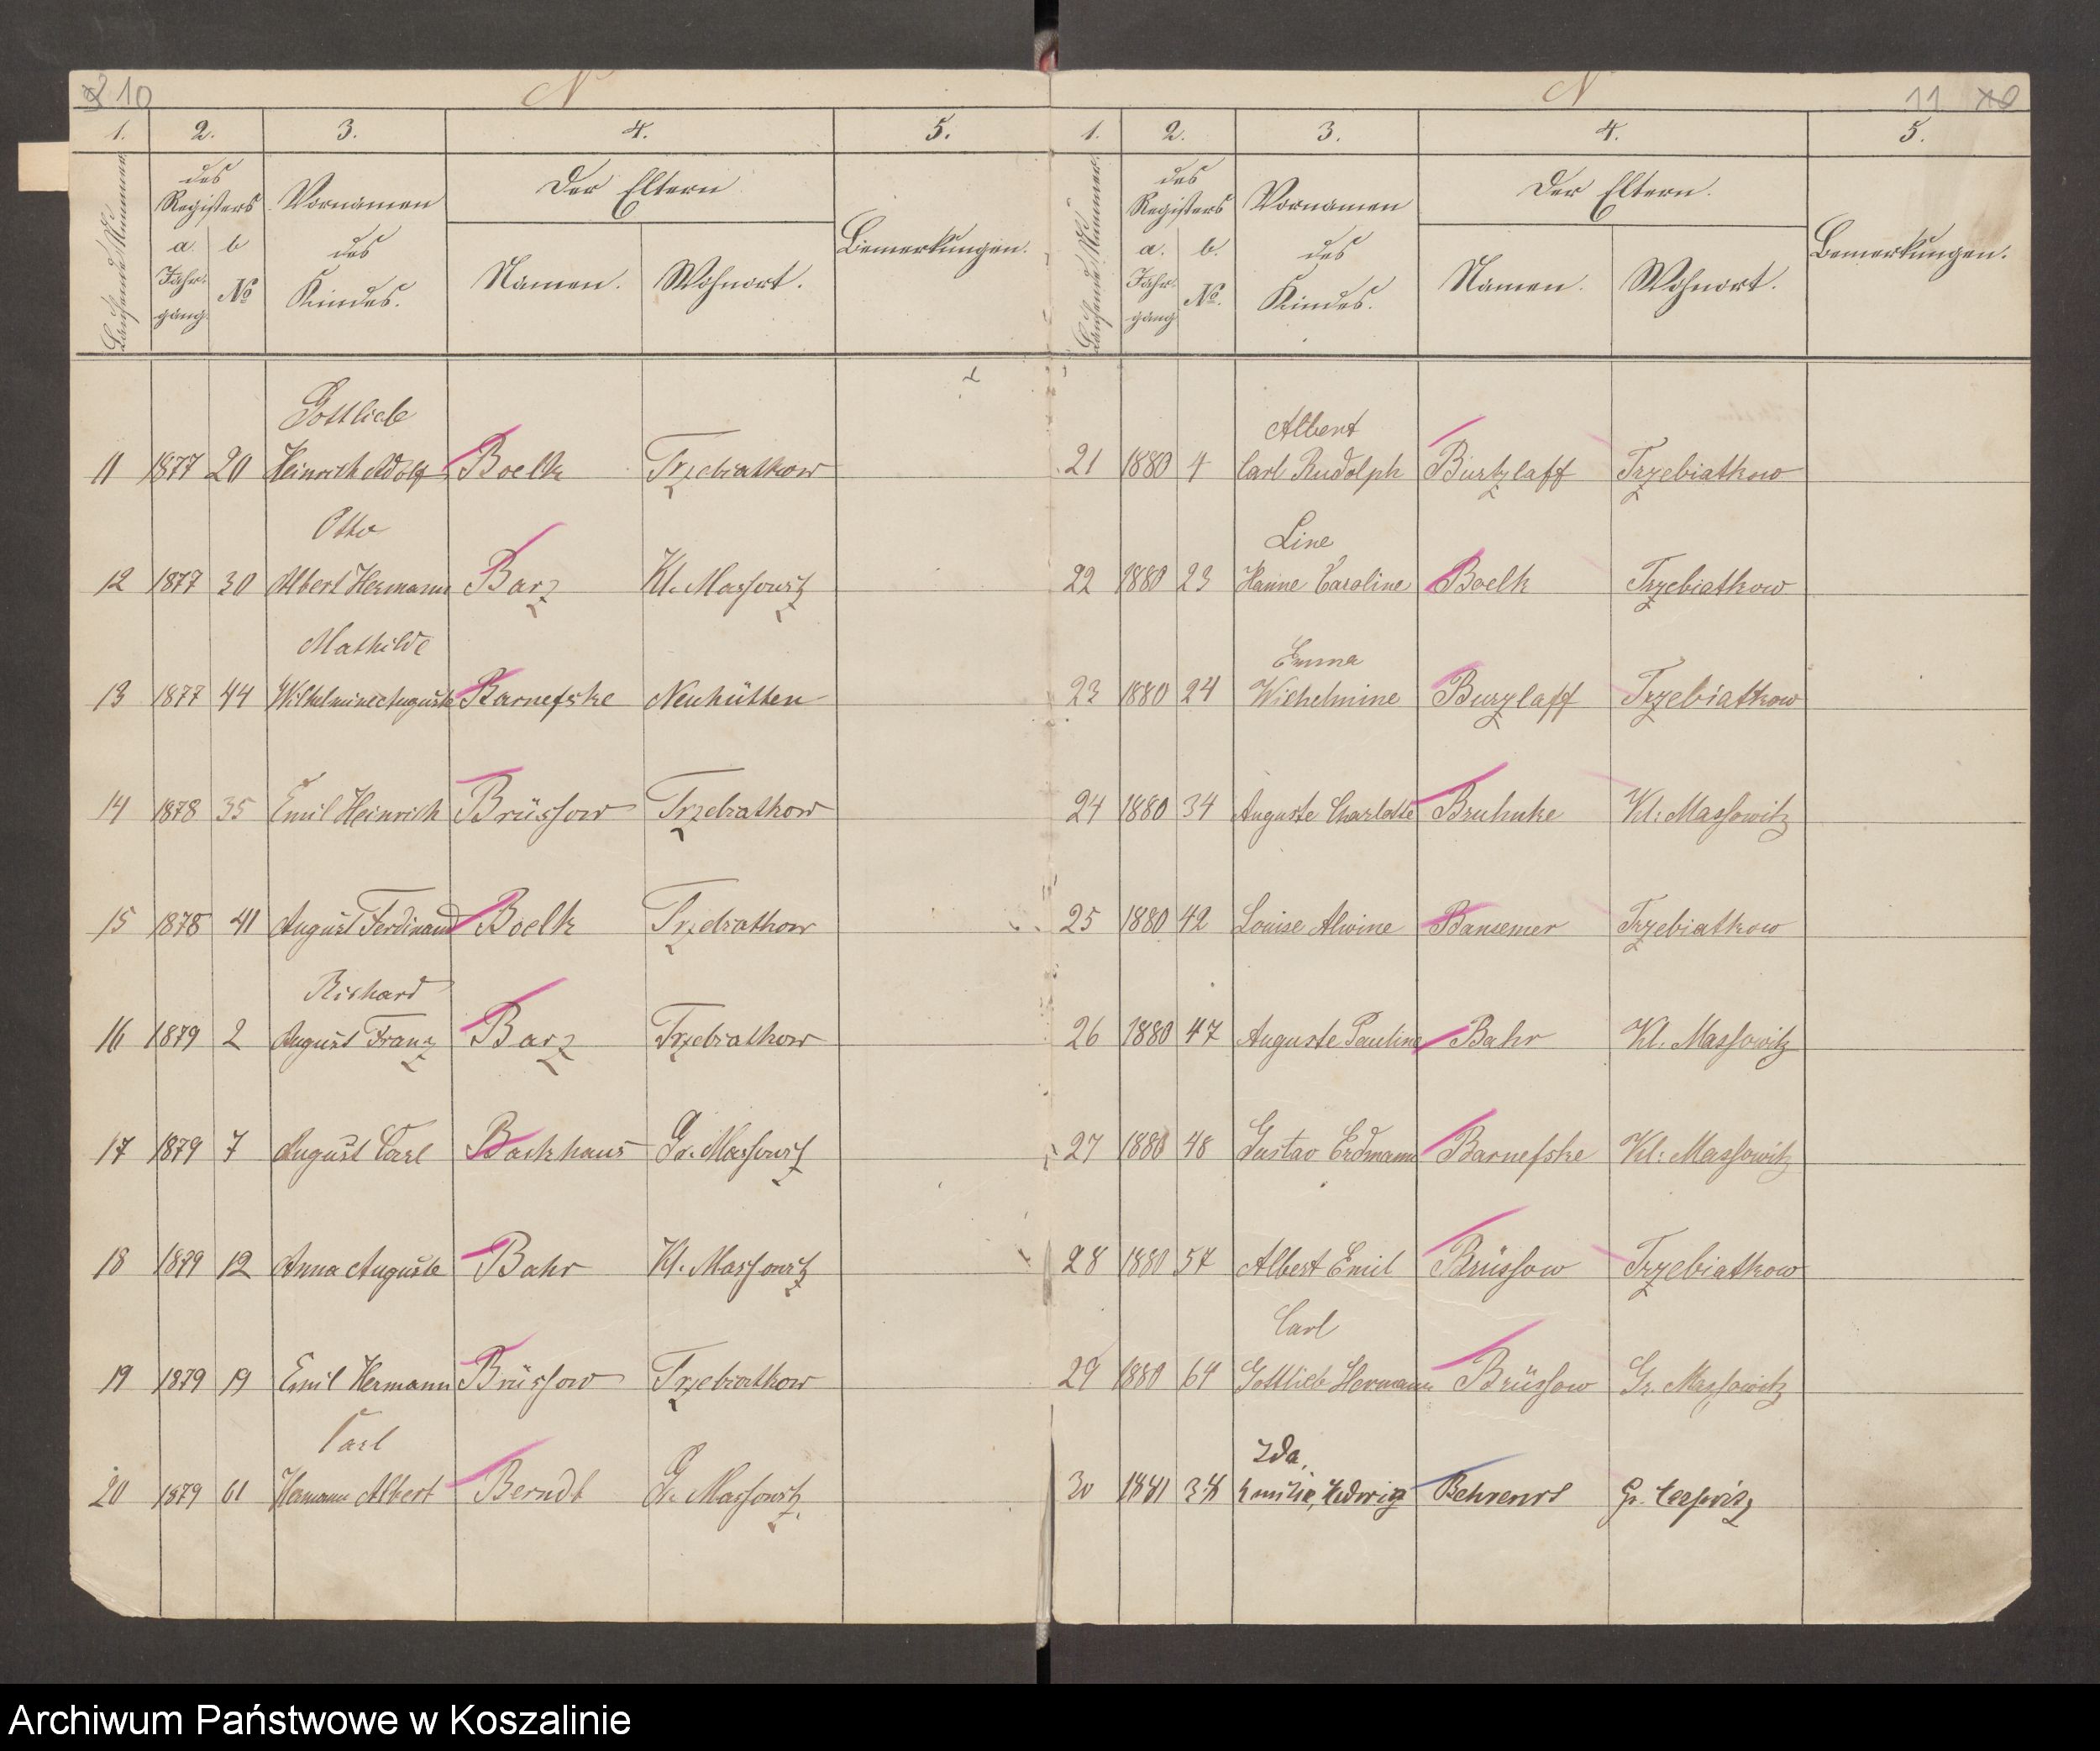 10
N
1. 2. 3. 4. 5.
Laufende Nummer.
des Registers
a. Jahrgang.
b №
Vornamen des Kindes.
Der Eltern
Namen. Wohnort.
Bemerkungen.
Gottlieb
11 1877 20 Heinrich Adolf Boelk Trzebiatkow
Otto
12 1877 30 Albert Hermann Barz Kl. Massowitz
Mathilde
13 1877 44 Wilhelmine Auguste Barnefske Neuhütten
14 1878 35 Emil Heinrich Brüssow Trzebiatkow
15 1878 41 August Ferdinand Boelk Trzebiatkow
Richard
16 1879 2 August Franz Barz Trzebiatkow
17 1879 7 August Carl Backhaus Gr. Massowitz
18 1879 12 Anna Auguste Bahr Kl. Massowitz
19 1879 19 Emil Hermann Brüssow Trzebiatkow
Carl
20 1879 61 Hermann Albert Berndt Gr. Massowitz.
11 10
N
1. 2. 3. 4. 5.
Laufende Nummer.
des Registers
a. Jahrgang
b. №.
Vornamen des Kindes.
Der Eltern.
Namen. Wohnort.
Bemerkungen.
Albert
21 1880 4 Carl Rudolph Burtzlaff Trzebiatkow
Line
22 1880 23 Hanne Caroline Boelk Trzebiatkow
Emma
23 1880 24 Wilhelmine Burzlaff Trzebiatkow
24 1880 34 Auguste Charlotte Bruhnke Kl: Massowitz
25 1880 42 Louise Alwine Bansemer Trzebiatkow
26 1880 47 Auguste Pauline Bahr Kl. Massowitz
27 1880 48 Gustav Erdmann Barnefske Kl: Massowitz
28 1880 57 Albert Emil Brüssow Trzebiatkow
Carl
29 1880 64 Gottlieb Hermann Brüssow Gr. Massowitz
Ida,
30 Emilie, Hedwig Gr.
Archiwum Państwowe w Koszalinie